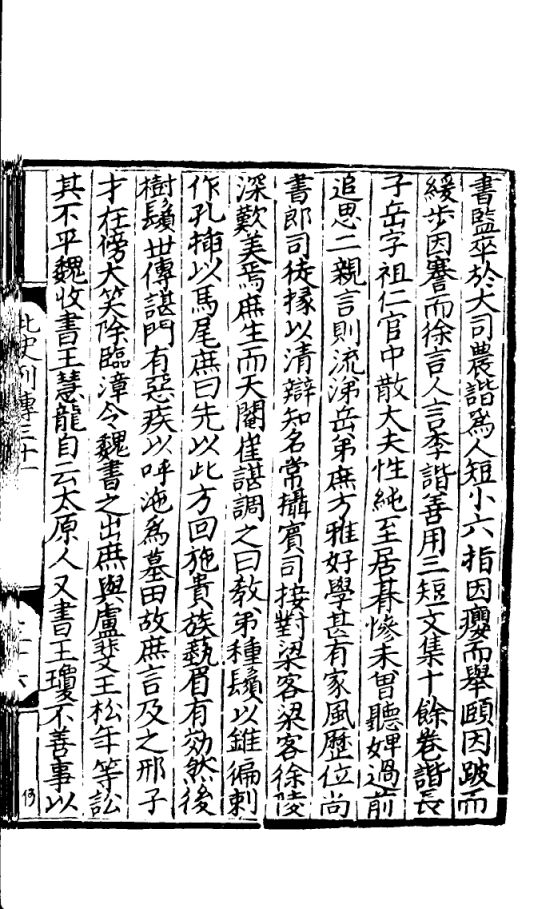 書監卒於大司農諧爲人短小六指因癭而舉頤因跛而
緩步因謇而徐言人言李諧善用三短文集十餘卷諧長
子岳字祖仁官中散大夫性純至居朞慘未曽聽婢過前
追思二親言則流涕岳弟庶方雅好學甚有家風歷位尚
書郎司徒掾以清辯知名常攝賓司接對梁客梁客徐陵
深歎美焉庶生而天閹崔諶調之曰教弟種鬚以錐徧刺
作孔揷以馬尾庶曰先以此方回施貴族藝眉有効然後
樹鬚世傳諶門有惡疾以呼沲爲墓田故庶言及之邢子
才在傍大笑除臨漳令魏書之出庶與盧斐王松年等訟
其不平魏收書王慧龍自云太原人又書王瓊不善事以
北史列傳三十一